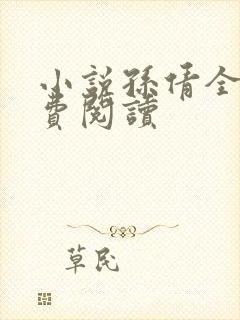 小說孫倩全
費閱讀
草民